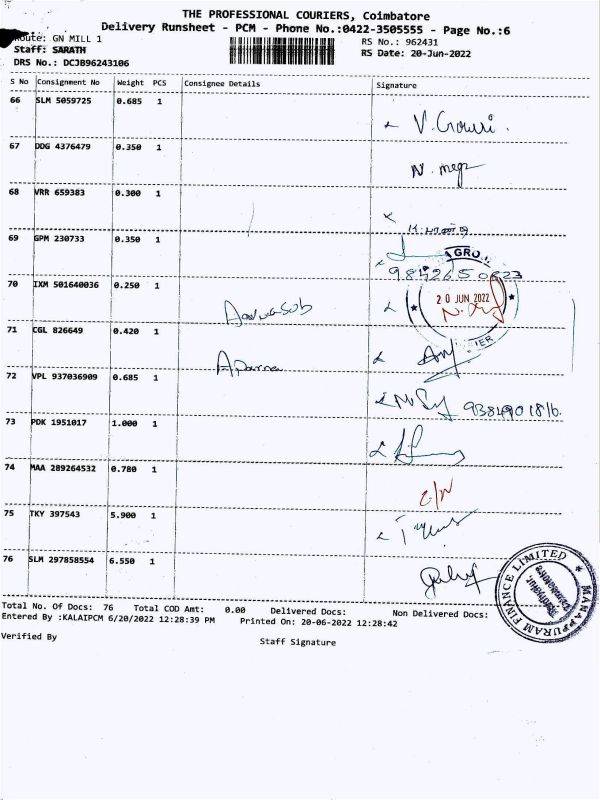 THE PROFESSIONAL COURIERS, Coimbatore
Delivery Runsheet - PCM - Phone No.:0422-3505555 - Page No.:6
Route: GN MILL 1
RS No.: 962431
Staff: SARATH
RS Date: 20-Jun-2022
DRS No.: DCJB96243106
S No Consignment No Weight PCS Consignee Details Signature
66 SLM 5059725 0.685 1
V. Gowri.
67 DDG 4376479 0.350 1
68 VRR 659383 0.300 1
69 GPM 230733 0.350 1
AGRO
70 IXM 501640036 0.250 1
20 JUN 2022
71 CGL 826649 0.420 1
Aparna
72 VPL 937036909 0.685 1
9384901816.
73 PDK 1951017 1.000 1
74 MAA 289264532 0.780 1
75 TKY 397543 5.900 1
76 SLM 297858554 6.550 1
MANAPPURAM FINANCE LIMITED
Total No. Of Docs: 76 Total COD Amt: 0.00 Delivered Docs: Non Delivered Docs:
Entered By :KALAIPCM 6/20/2022 12:28:39 PM Printed On: 20-06-2022 12:28:42
Verified By
Staff Signature